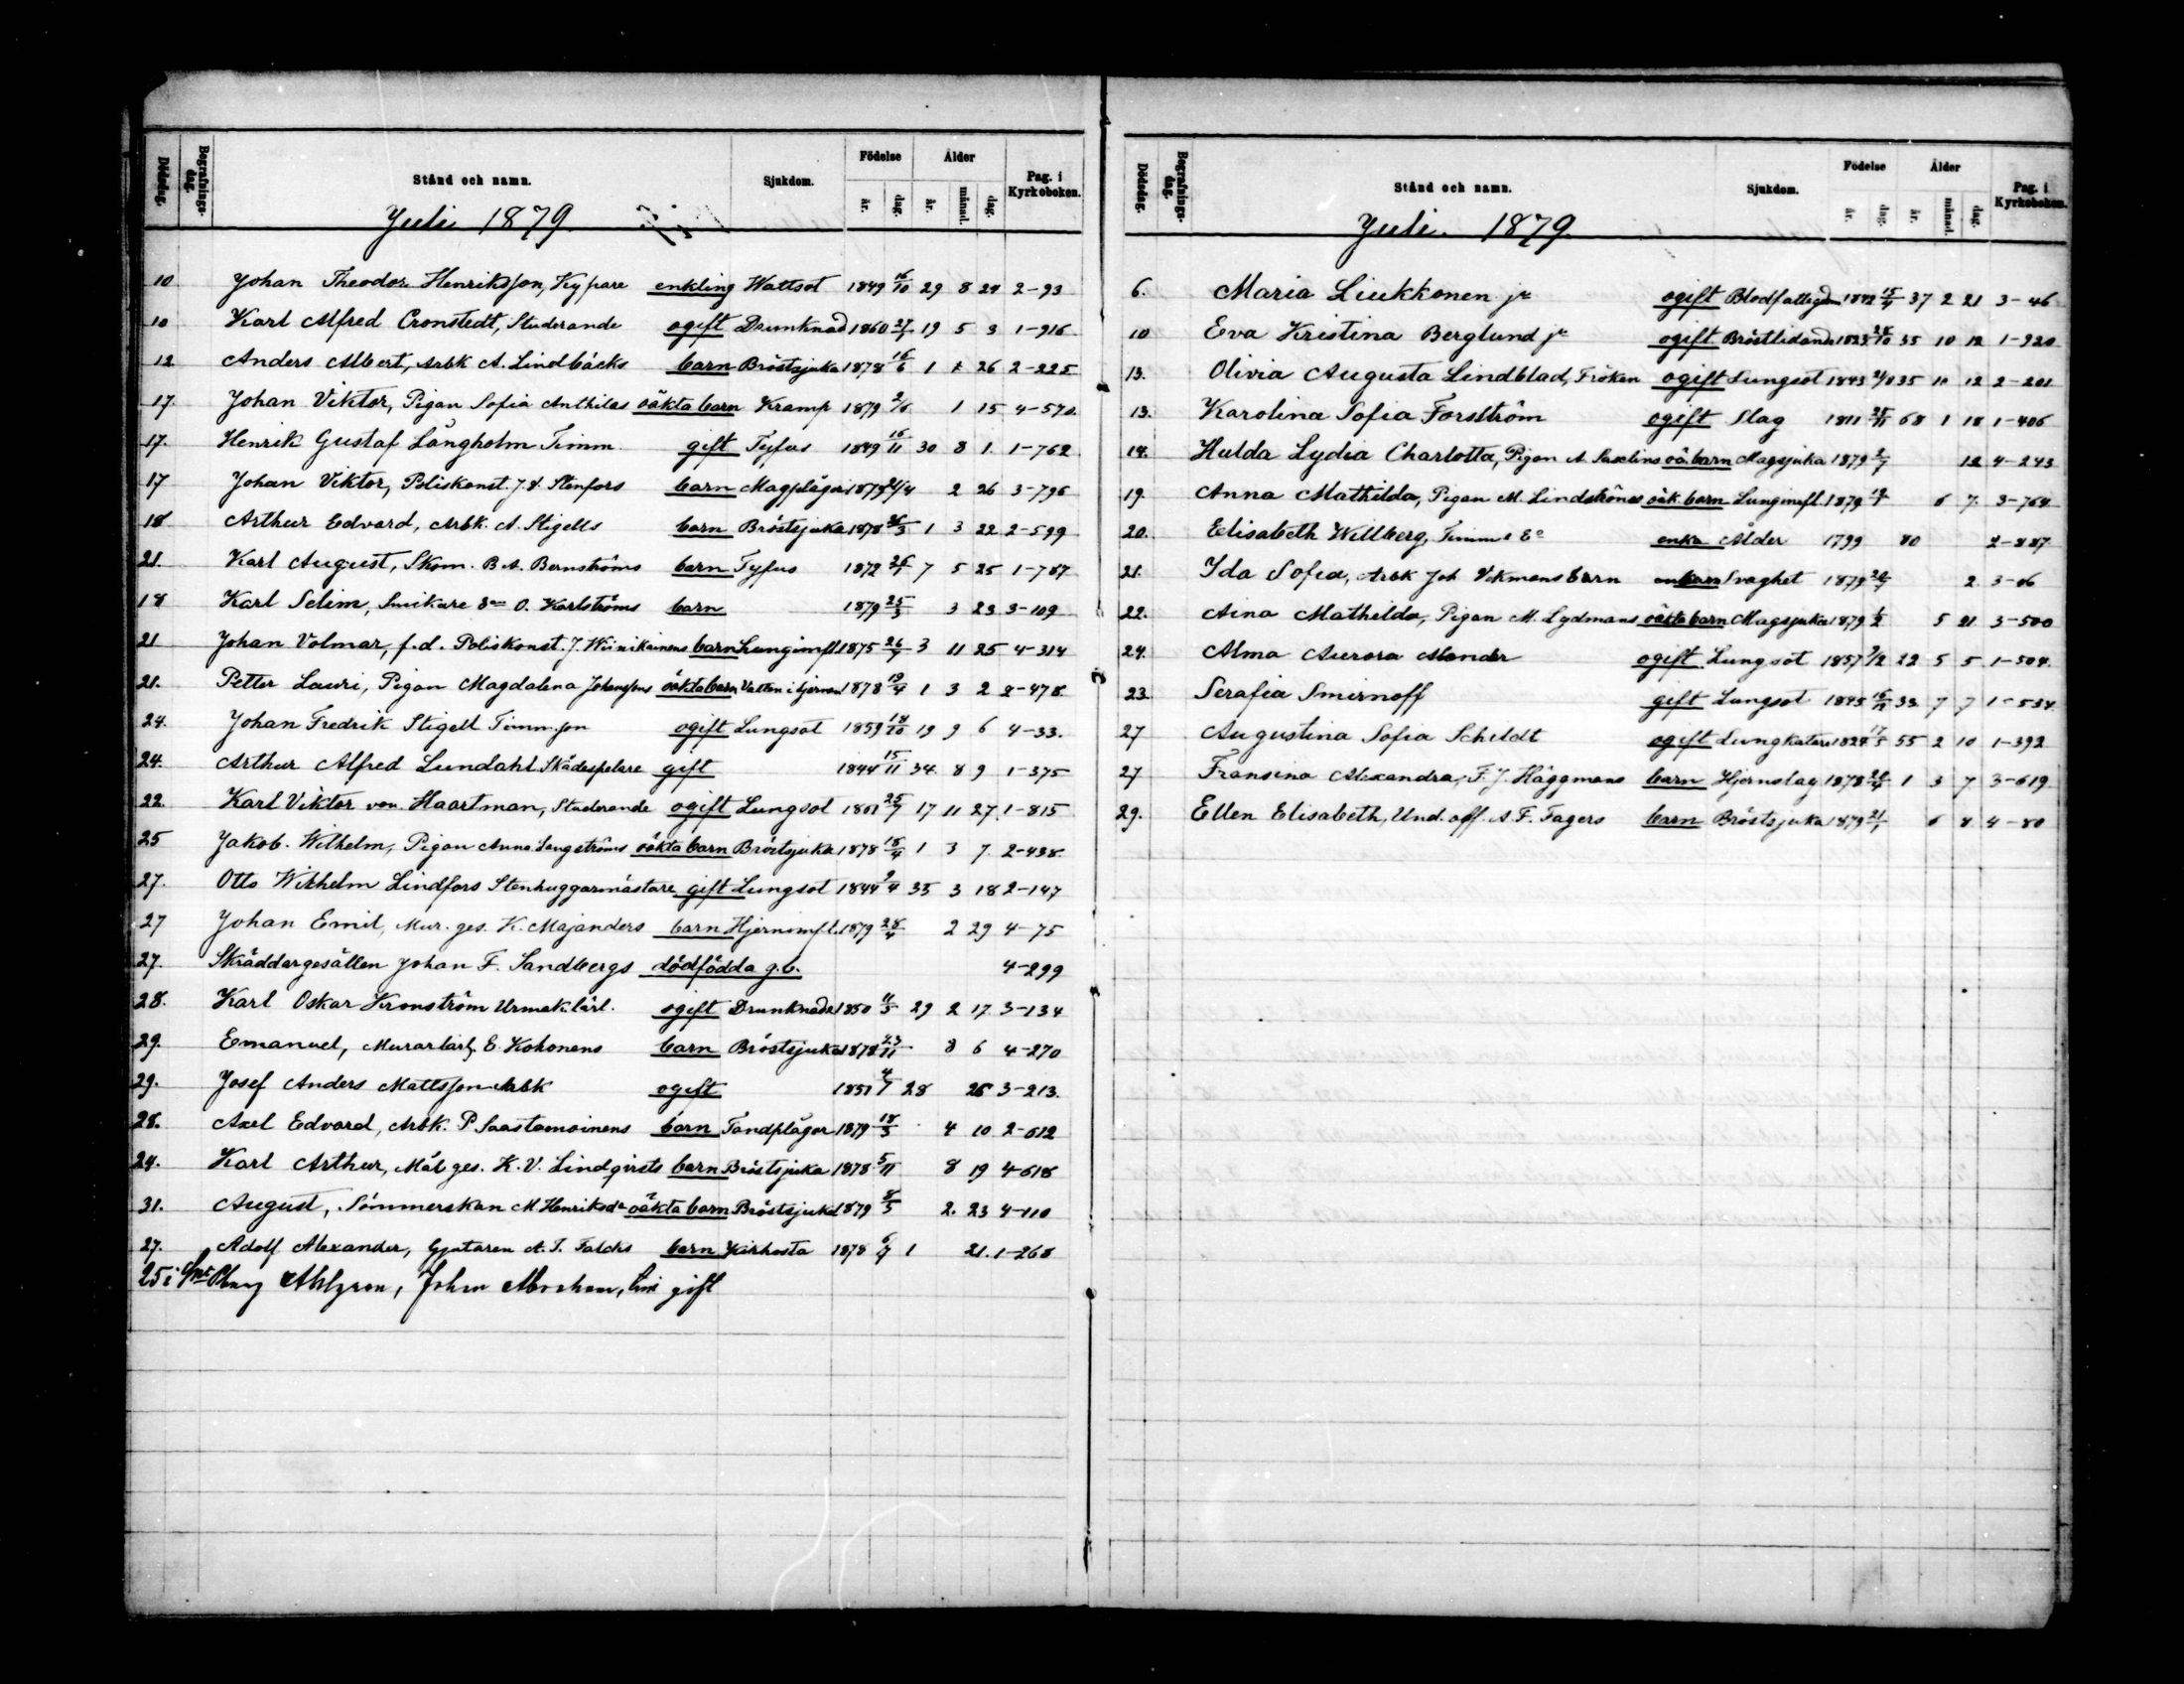 Dödsdag. Begrafningsdag. Stånd och namn. Sjukdom. Födelse Ålder Pag. i Kyrkoboken.
år. dag. år. månad. dag.
Juli 1879.
10 Johan Theodor Henriksson, Kypare enkling Wattsot 1849 16/10 29 8 24 2-93
10 Karl Alfred Cronstedt, Studerande ogift Drunknad 1860 27/1 19 5 3 1-916
12 Anders Albert, Arbk A. Lindbäcks barn Bröstsjuka 1878 16/6 1 1 26 2-225
17 Johan Viktor, Pigan Sofia Anthilas oäkta barn Kramp 1879 2/6 1 15 4-570
17. Henrik Gustaf Långholm Timm gift Tyfus 1849 16/11 30 8 1 1-762
17 Johan Viktor, Poliskonst. J. V. Stenfors barn Magplågor 1879 21/4 2 26 3-796
18 Arthur Edvard, Arbk. A. Stigells barn Bröstsjuka 1878 26/3 1 3 22 2-599
21. Karl August, Skom. B. A. Bernströms barn Tyfus 1872 26/1 7 5 25 1-787
18 Karl Selim, Snickare O. Karlströms barn 1879 25/3 3 23 3-109
21 Johan Volmar, f.d. Poliskonst. J. Wiinikainens barn Lunginfl 1875 26/7 3 11 25 4-314
21. Petter Lauri, Pigan Magdalena Johanssons oäkta barn Vatten i hjernan 1878 19/4 1 3 2 2-478
24. Johan Fredrik Stigell Timm.son ogift Lungsot 1859 18/10 19 9 6 4-33.
24. Arthur Alfred Lundahl Skådespelare gift 1844 15/11 34 8 9 1-375
22. Karl Viktor von Haartman, Studerande ogift Lungsot 1861 25/7 17 11 27 1-815
25 Jakob Wilhelm, Pigan Anna Langströms oäkta barn Bröstsjuka 1878 18/4 1 3 7 2-438
27. Otto Wilhelm Lindfors Stenhuggarmästare gift Lungsot 1844 9/4 35 3 18 2-147
27 Johan Emil, Mur. ges. K. Majanders barn Hjerninfl. 1879 28/4 2 29 4-75
27. Skräddargesällen Johan F. Sandbergs dödfödda g.b. 4-299
28. Karl Oskar Kronström Urmak.lärl. ogift Drunknade 1850 11/5 29 2 17 3-134
29. Emanuel, Murarlärl. E. Kokonens barn Bröstsjuka 1878 23/11 8 6 4-270
29. Josef Anders Mattsson Arbk ogift 1851 4/7 28 25 3-213.
28. Axel Edvard, Arbk. P Saastamoinens barn Tandplågor 1879 18/3 4 10 2-612
24. Karl Arthur, Mål ges. K. V. Lindqvists barn Bröstsjuka 1878 5/11 8 19 4-618
31. August, Sömmerskan M. Henriksda oäkta barn Bröstsjuka 1879 8/5 2. 23 4-110
27. Adolf Alexander, Gjutaren A. T. Falcks barn Kikhosta 1878 6/7 1 21. 1-268
25 Ahlgren, Johan Abraham, gift
Dödsdag. Begrafningsdag. Stånd och namn. Sjukdom. Födelse Ålder Pag. i Kyrkoboken.
år. dag. år. månad. dag.
Juli. 1879.
6. Maria Liukkonen ja ogift Blodfattigdom 1842 15/4 37 2 21 3-46
10 Eva Kristina Berglund ja ogift Bröstlidande 1823 28/10 35 10 12 1-920
13. Olivia Augusta Lindblad, Fröken ogift Lungsot 1843 35 11 12 2-201
13. Karolina Sofia Forsström ogift Slag 1811 25/5 68 1 18 1-406
14. Hulda Lydia Charlotta, Pigan A Saxelins oä. barn Magsjuka 1879 2/7 12 4-243
19. Anna Mathilda, Pigan M. Lindströms oäk. barn Lunginfl. 1879 12/1 6 7. 3-764
20. Elisabeth Willberg, Timm. Ea enka Ålder 1799 80 2-887
21. Ida Sofia, Arbk Joh Vikmans barn Svaghet 1879 2 3-06
22. Aina Mathilda, Pigan M. Lydmans oäkta barn Magsjuka 1879 1/2 5 21 3-500
24. Alma Aurora Monder ogift Lungsot 1857 22 5 5 1-504
23 Serafia Smirnoff gift Lungsot 1845 16/12 33 7 7 1-534
27 Augustina Sofia Schildt ogift Lungkatarr 1824 17/5 55 2 10 1-392
27 Fransina Alexandra, F. J. Häggmans barn Hjernslag 1878 20/4 1 3 7 3-619
29. Ellen Elisabeth, Und. off. A. F. Fagers barn Bröstsjuka 1879 21/1 6 8 4-80